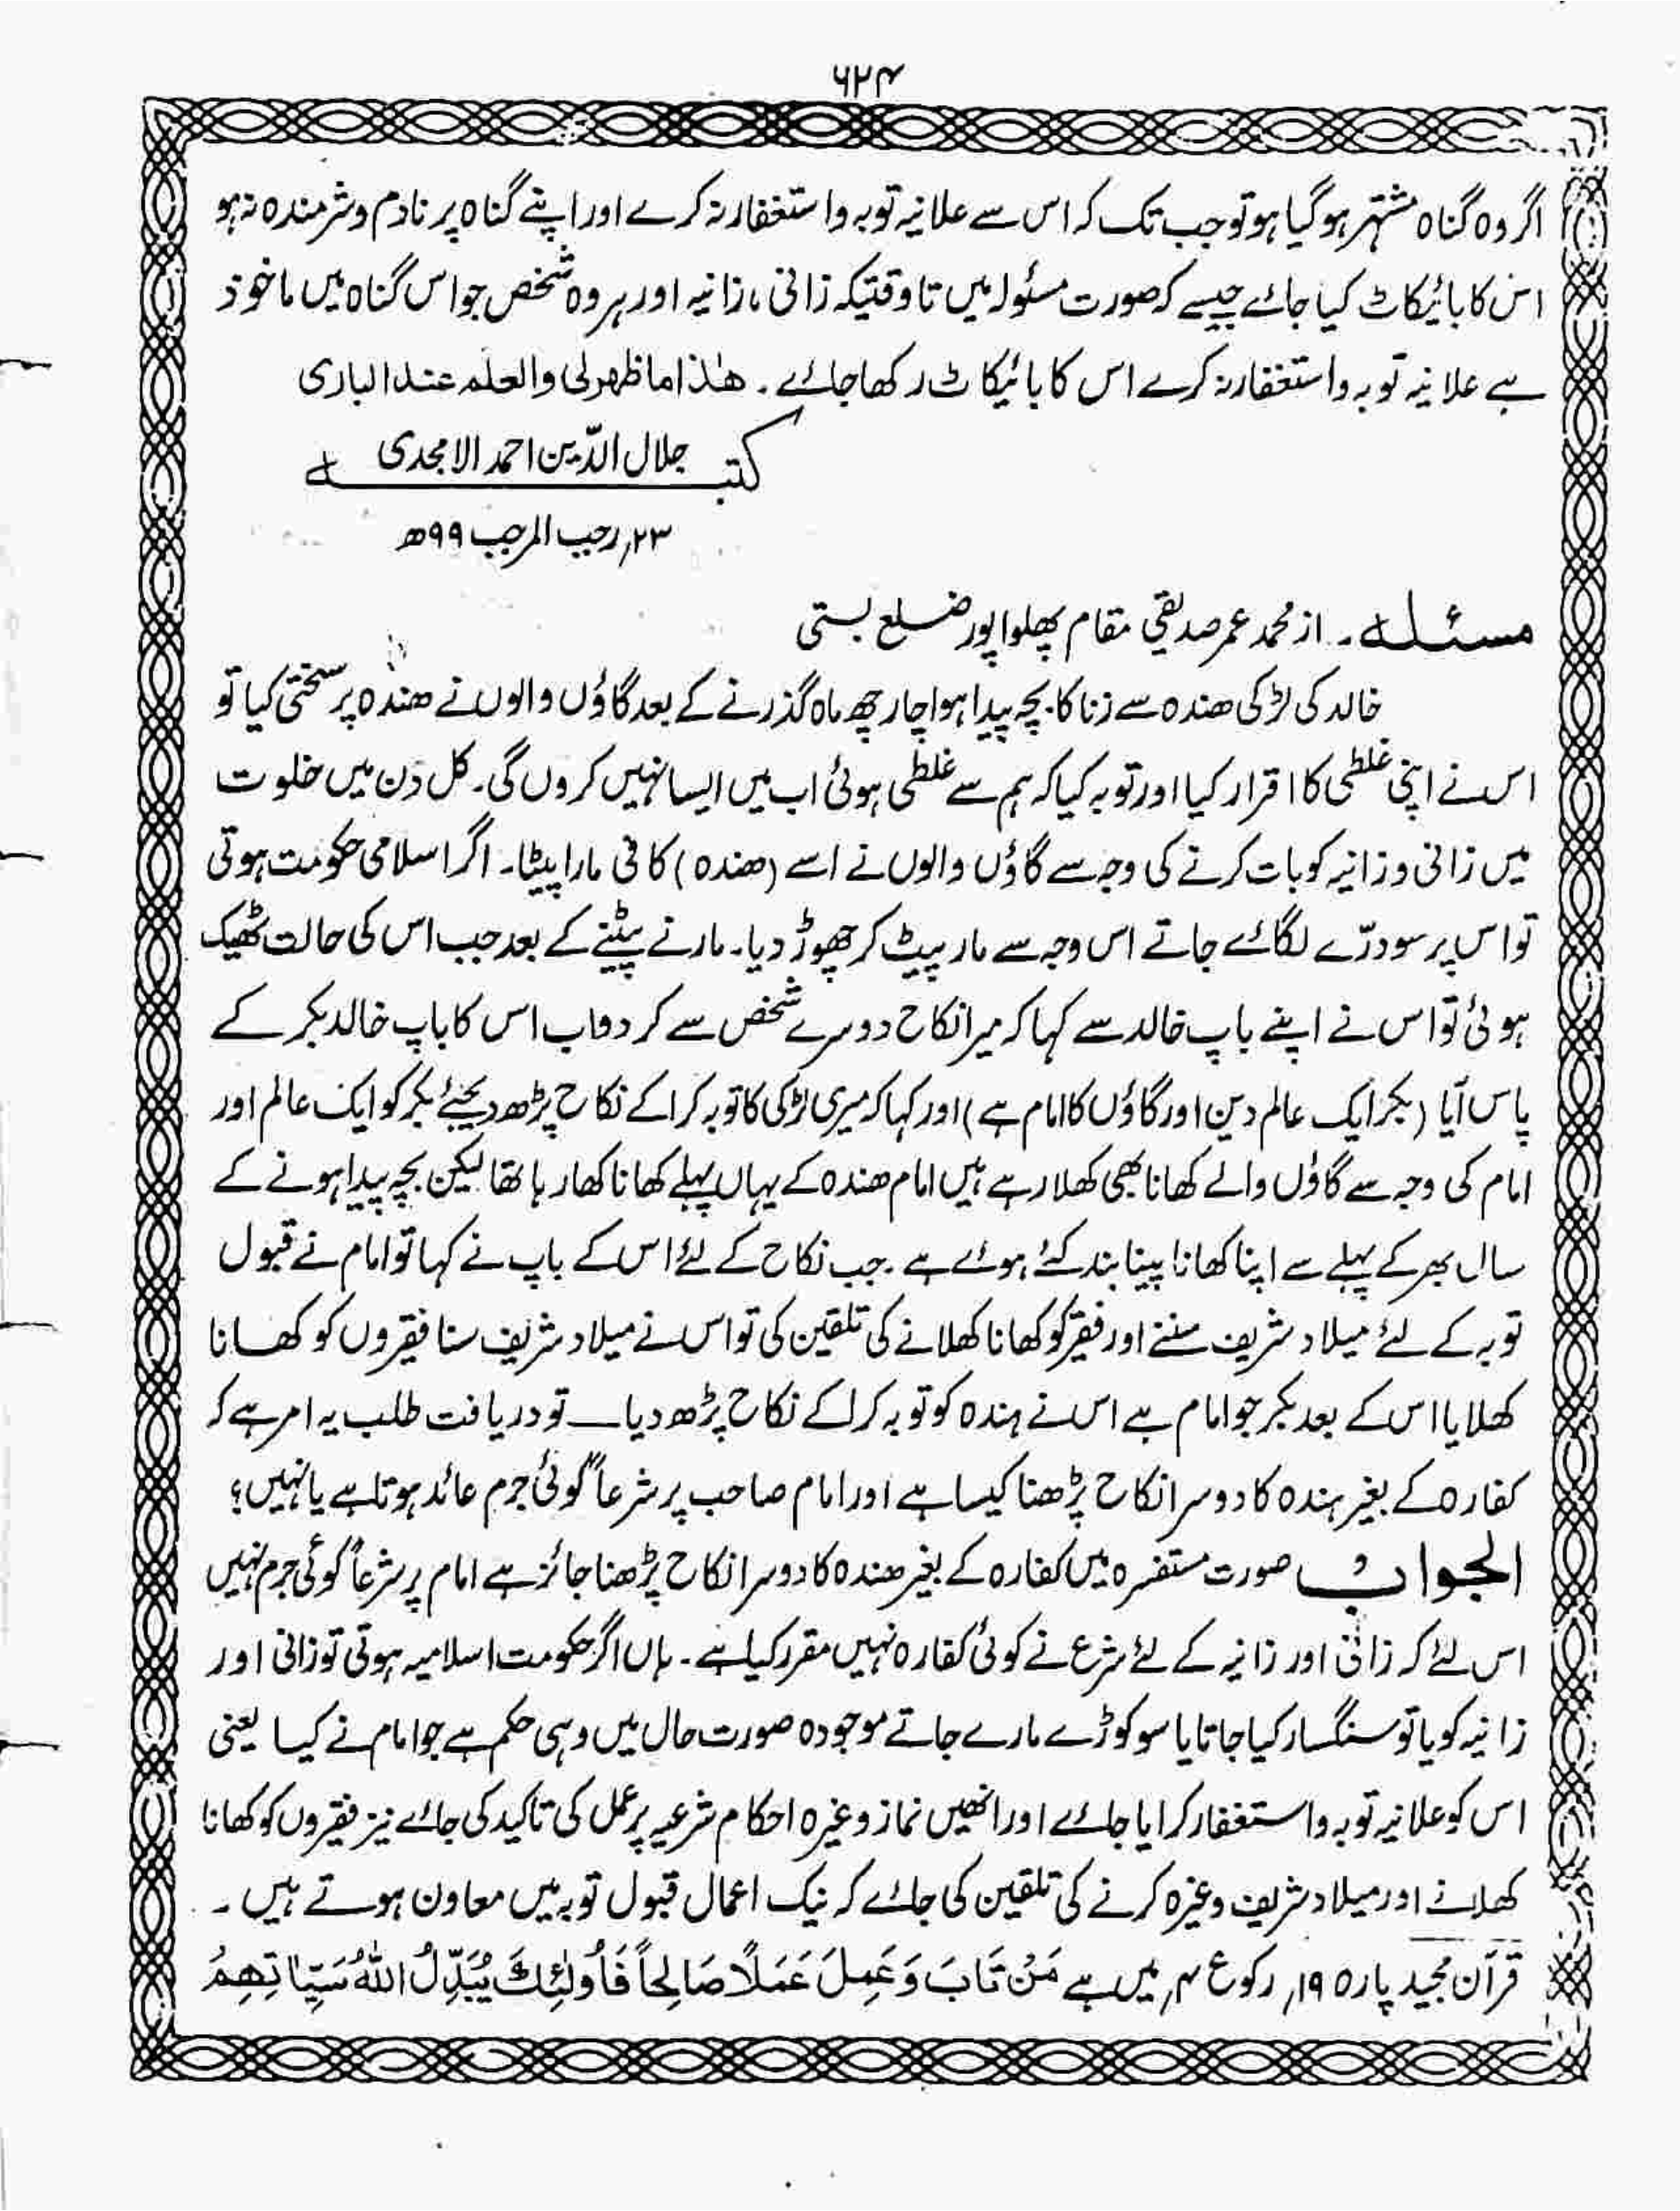 ۶۲۴
اگر وہ گناہ مشتہر ہو گیا ہو تو جب تک کہ اس سے علانیہ توبہ و استغفار نہ کرے اور اپنے گناہ پر نادم و شرمندہ نہ ہو
اس کا بائیکاٹ کیا جائے جیسے کہ صورت مسئولہ میں تاوقتیکہ زانی، زانیہ اور ہر وہ شخص جو اس گناہ میں ماخوذ
ہے علانیہ توبہ و استغفار نہ کرے اس کا بائیکاٹ رکھا جائے۔ ھٰذا ما ظھر لی والعلم عند الباری
کتبہ جلال الدّین احمد الامجدی
۲۳؍ رجب المرجب ۹۹ھ
مسئلہ۔ از محمد عمر صدیقی مقام پھلواپور ضلع بستی
خالد کی لڑکی ھندہ سے زنا کا بچہ پیدا ہوا چار چھ ماہ گذرنے کے بعد گاؤں والوں نے ھندہ پر سختی کیا تو
اس نے اپنی غلطی کا اقرار کیا اور توبہ کیا کہ ہم سے غلطی ہوئی اب میں ایسا نہیں کروں گی۔ کل دن میں خلوت
میں زانی و زانیہ کو بات کرنے کی وجہ سے گاؤں والوں نے اسے (ھندہ) کافی مارا پیٹا۔ اگر اسلامی حکومت ہوتی
تو اس پر سو درّے لگائے جاتے اس وجہ سے مار پیٹ کر چھوڑ دیا۔ مارنے پیٹنے کے بعد جب اس کی حالت ٹھیک
ہوئی تو اس نے اپنے باپ خالد سے کہا کہ میرا نکاح دوسرے شخص سے کر دو اب اس کا باپ خالد بکر کے
پاس آیا (بکر ایک عالم دین اور گاؤں کا امام ہے) اور کہا کہ میری لڑکی کا توبہ کرا کے نکاح پڑھ دیجئے بکر کو ایک عالم اور
امام کی وجہ سے گاؤں والے کھانا بھی کھلا رہے ہیں امام ھندہ کے یہاں پہلے کھانا کھا رہا تھا لیکن بچہ پیدا ہونے کے
سال بھر کے پہلے سے اپنا کھانا پینا بند کئے ہوئے ہے۔ جب نکاح کے لئے اس کے باپ نے کہا تو امام نے قبول
توبہ کے لئے میلاد شریف سننے اور فقیر کو کھانا کھلانے کی تلقین کی تو اس نے میلاد شریف سنا فقیروں کو کھانا
کھلایا اس کے بعد بکر جو امام ہے اس نے ہندہ کو توبہ کرا کے نکاح پڑھ دیا ــــ تو دریافت طلب یہ امر ہے کہ
کفارہ کے بغیر ہندہ کا دوسرا نکاح پڑھنا کیسا ہے اور امام صاحب پر شرعاً کوئی جرم عائد ہوتا ہے یا نہیں؟
الجواب صورت مستفسرہ میں کفارہ کے بغیر ھندہ کا دوسرا نکاح پڑھنا جائز ہے امام پر شرعاً کوئی جرم نہیں
اس لئے کہ زانی اور زانیہ کے لئے شرع نے کوئی کفارہ نہیں مقرر کیا ہے۔ ہاں اگر حکومت اسلامیہ ہوتی تو زانی اور
زانیہ کو یا تو سنگسار کیا جاتا یا سو کوڑے مارے جاتے موجودہ صورت حال میں وہی حکم ہے جو امام نے کیا یعنی
اس کو علانیہ توبہ و استغفار کرایا جائے اور انھیں نماز وغیرہ احکام شرعیہ پر عمل کی تاکید کی جائے نیز فقیروں کو کھانا
کھلانے اور میلاد شریف وغیرہ کرنے کی تلقین کی جائے کہ نیک اعمال قبول توبہ میں معاون ہوتے ہیں۔
قرآن مجید پارہ ۱۹؍ رکوع ۴؍ میں ہے مَنْ تَابَ وَعَمِلَ عَمَلًا صَالِحاً فَاُولٰئِكَ يُبَدِّلُ اللهُ سَيِّاٰتِهِمْ